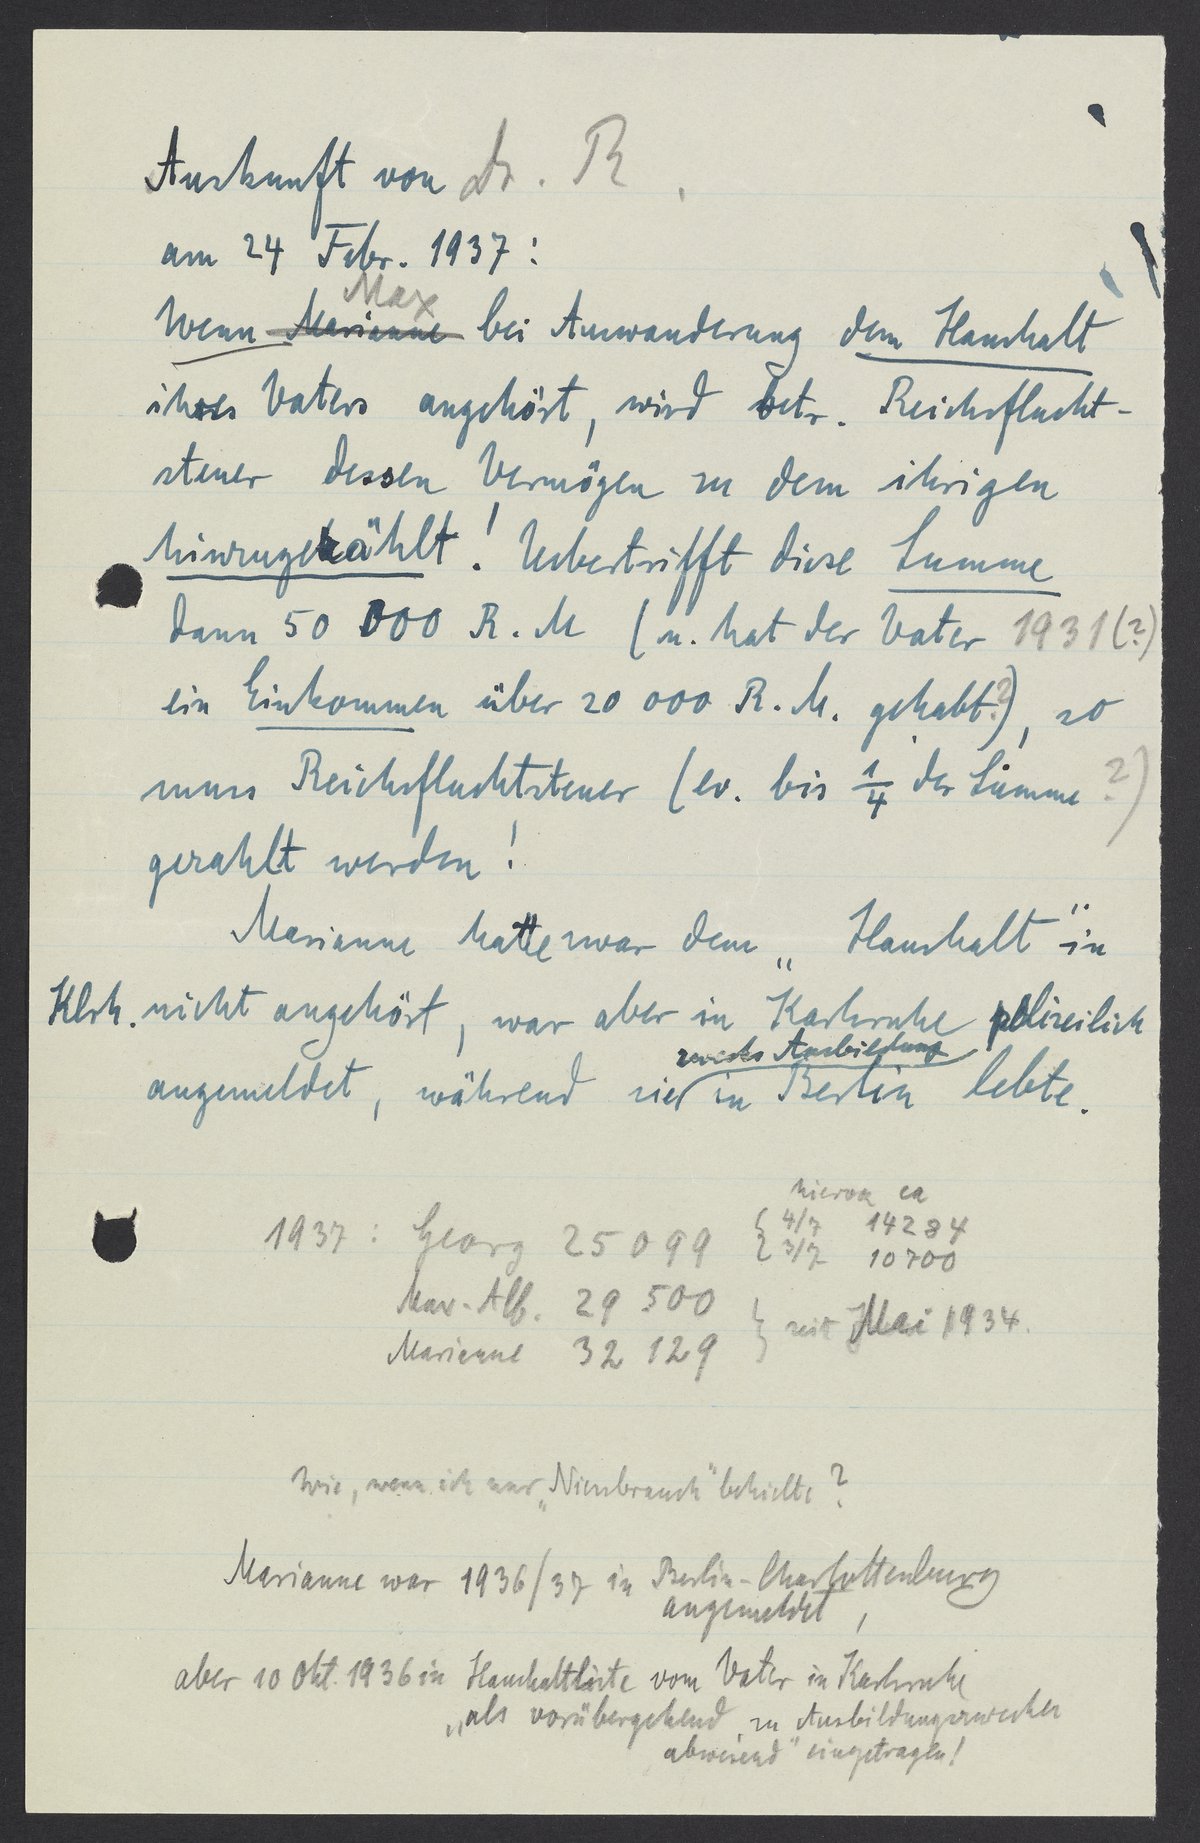 Auskunft von Dr. R.
am 24 Febr. 1937:
Max
Wenn Marianne bei Auswanderung dem Haushalt
ihres Vaters angehört, wird betr. Reichsflucht-
steuer dessen Vermögen zu dem ihrigen
hinzugezählt! Uebertrifft diese Summe
dann 50 000 R.M (u. hat der Vater 1931(?)
ein Einkommen über 20 000 R.M. gehabt?), so
muss Reichsfluchtsteuer (ev. bis 1/4 der Summe?)
gezahlt werden!
Marianne hatte zwar dem „Haushalt" in
Klrh. nicht angehört, war aber in Karlsruhe polizeilich
zwecks Ausbildung
angemeldet, während sie in Berlin lebte.
hievon ca
1937: Georg 25 099 { 4/7 14284
3/7 10700
Max-Alb. 29 500
Marianne 32 129 } seit Mai 1934.
Wie, wenn ich nur „Niessbrauch" behielte?
Marianne war 1936/37 in Berlin-Charlottenburg
angemeldet,
aber 10 Okt. 1936 in Haushaltliste vom Vater in Karlsruhe
„als vorübergehend zu Ausbildungszwecken
abwesend" eingetragen!